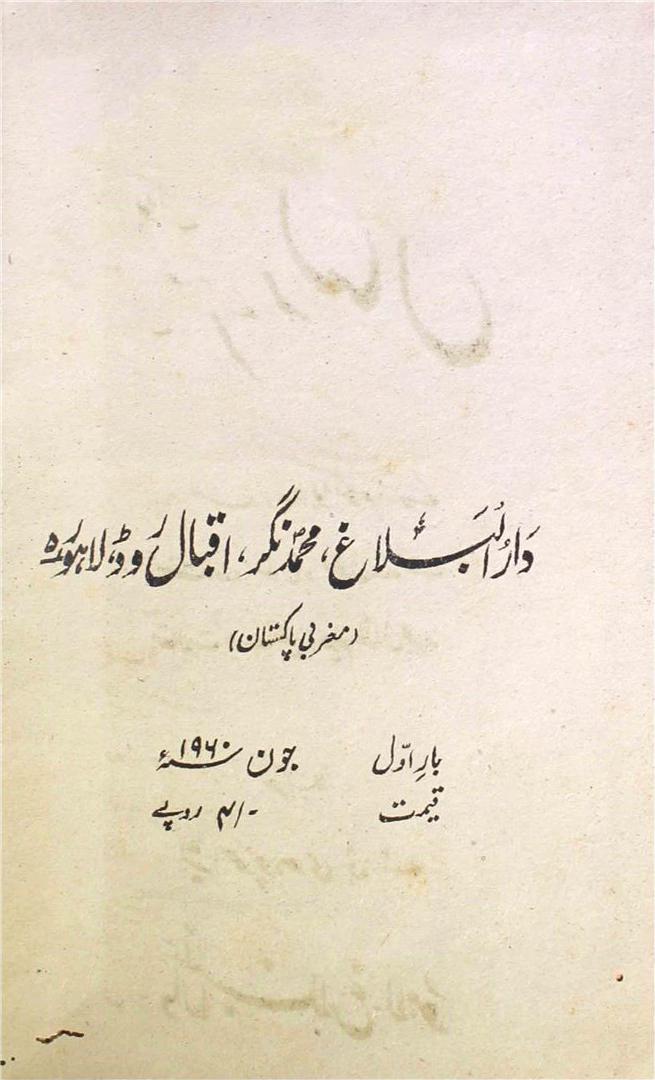 دارُ البَلاغ، محمّد نگر، اقبال روڈ، لاہور
(مغربی پاکستان)
بارِ اوّل جون ۱۹۶۰ء
قیمت ۴/- روپے